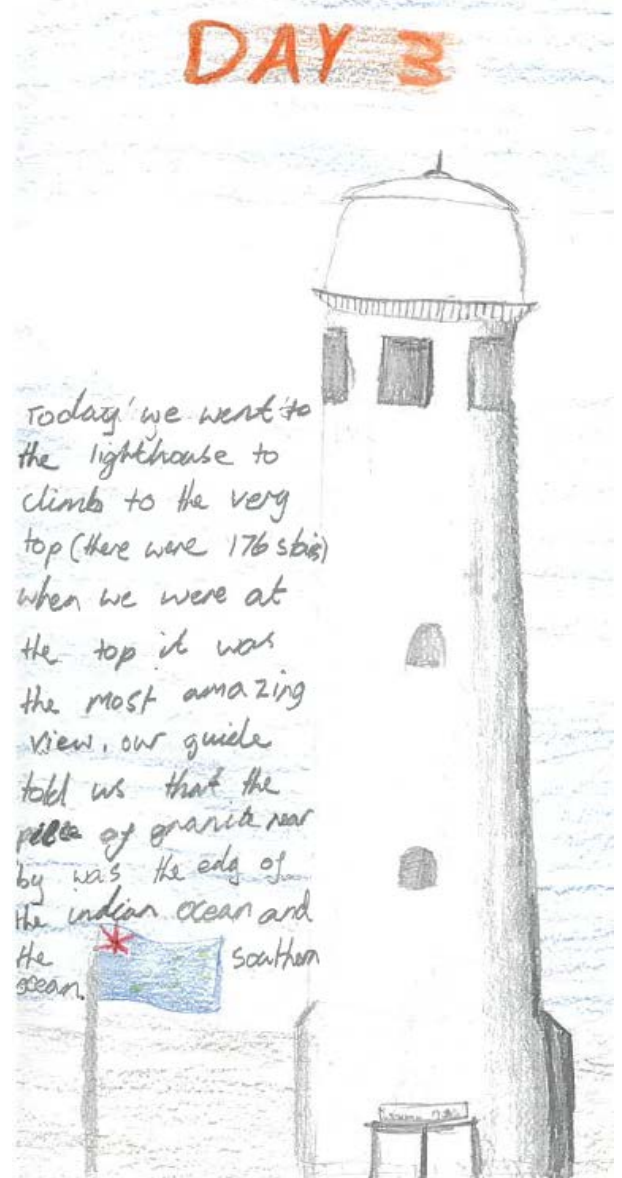 DAY 3
Today we went to
the lighthouse to
climb to the very
top (there were 176 stairs)
when we were at
the top it was
the most amazing
view. our guide
told us that the
piece of granite near
by was the edg of
the indian ocean and
the southern
ocean.